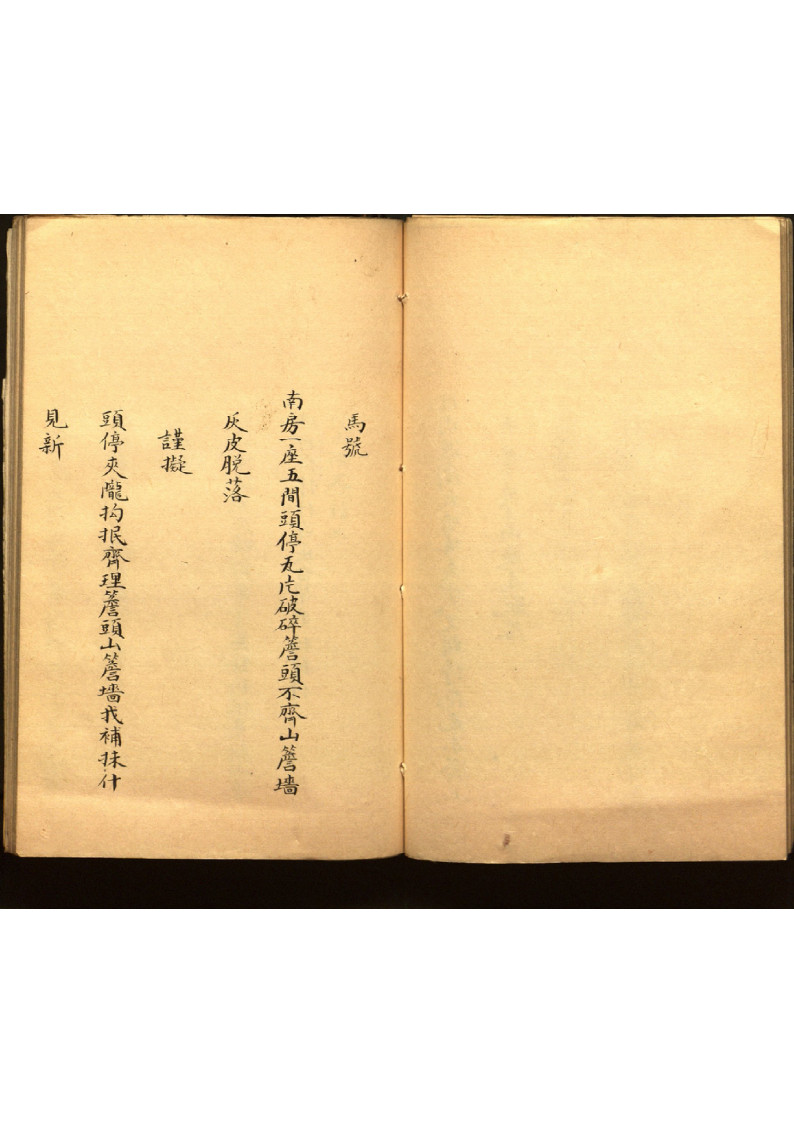 馬號
南房一座五間頭停瓦片破碎簷頭不齊山簷墻
灰皮脱落
謹擬
頭停夾隴抅抿齊理簷頭山簷墻找補抹什
見新